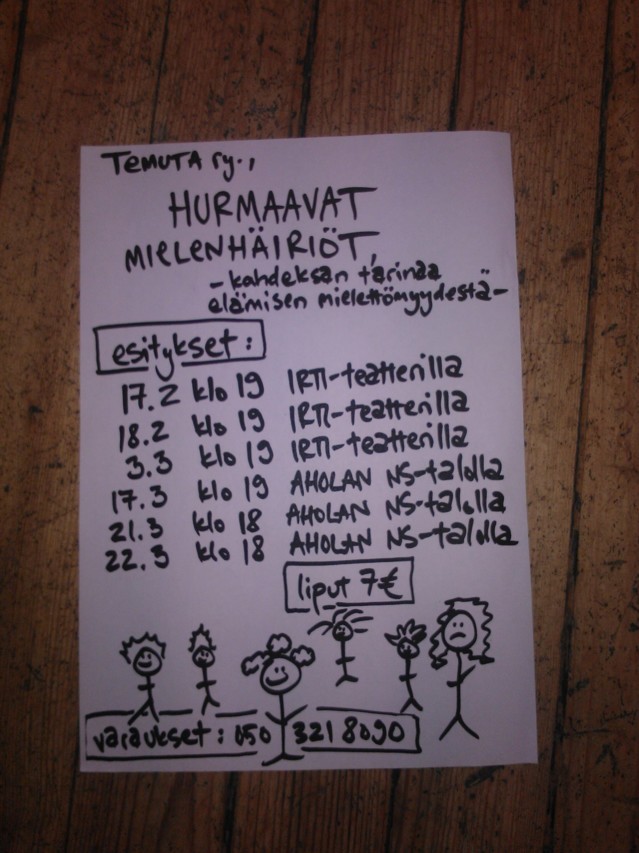 TEMUTA ry.,
HURMAAVAT
MIELENHÄIRIÖT,
- kahdeksan tarinaa
elämisen mielettömyydestä -
esitykset:
17.2 klo 19 IRTI-teatterilla
18.2 klo 19 IRTI-teatterilla
3.3 klo 19 IRTI-teatterilla
17.3 klo 19 AHOLAN NS-talolla
21.3 klo 18 AHOLAN NS-talolla
22.3 klo 18 AHOLAN NS-talolla
liput 7€
varaukset: 050 321 8090